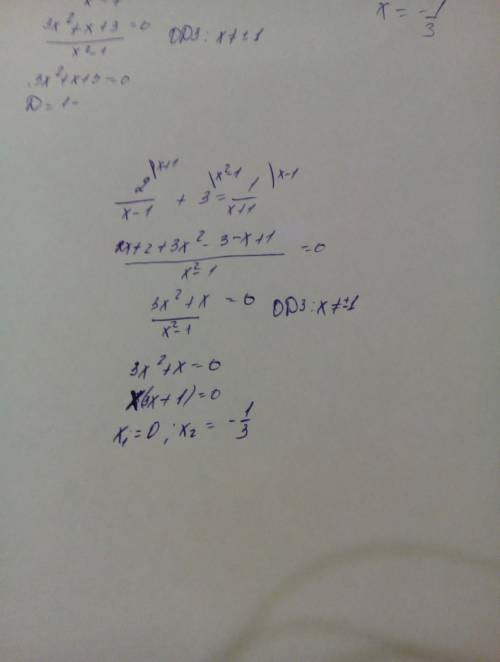 3x²+x+3/x²-1 =0 ОДЗ: x≠±1
x = -1/3
3x²+x+3=0
D=1-
2/x-1 |x+1 + 3 |x²-1 = 1/x+1 |x-1
2x+2+3x²-3-x+1/x²-1 =0
3x²+x/x²-1 =0 ОДЗ: x≠±1
3x²+x=0
x(3x+1)=0
x₁=0; x₂ = -1/3